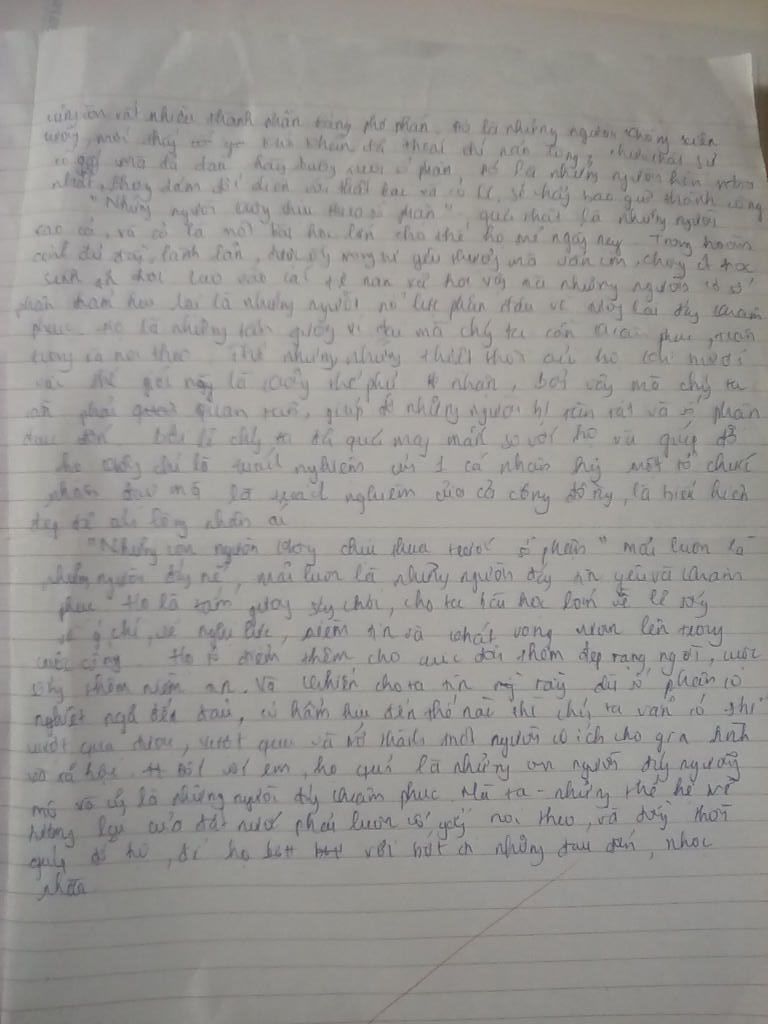 còn rất nhiều thành phần đáng phê phán. Đó là những người không kiên
cường, mới thấy khó khăn đã thoái chí nản lòng, chưa thật sự
cố gắng mà đã đầu hàng, buông xuôi số phận, đó là những người hèn nhát
nhất, không dám đối diện với thất bại và có lẽ, sẽ chẳng bao giờ thành công
"Những người không chịu thua số phận", quả thật là những người
cao cả, và có là một bài học lớn cho thế hệ trẻ ngày nay. Trong hoàn
cảnh đủ đầy, lành lặn, được sống trong sự yêu thương mà vẫn còn, chẳng ít học
sinh ăn chơi lao vào các tệ nạn xã hội vậy mà những người có số
phận hẩm hiu lại là những người nỗ lực phấn đấu vì tương lai đầy khâm
phục. Họ là những tấm gương ví dụ mà chúng ta cần khâm phục, trân
trọng và noi theo. Thế nhưng, những thiệt thòi của họ với
thế giới này là không thể phủ nhận, bởi vậy mà chúng ta
cần phải quan tâm, giúp đỡ những người bị tàn tật và số phận
đau đớn. Bởi lẽ chúng ta đã quá may mắn so với họ và giúp đỡ
họ không chỉ là trách nghiệm của 1 cá nhân hay một tổ chức
nhân đạo mà là trách nghiệm của cả cộng đồng, là biểu hiện
đẹp đẽ của lòng nhân ái.
"Những con người không chịu thua trước số phận" mãi luôn là
những người đáng nể, mãi luôn là những người đáng tin yêu và khâm
phục. Họ là tấm gương sáng chói, cho ta bài học lớn về lẽ sống
về ý chí, về nghị lực, niềm tin và khát vọng vươn lên trong
cuộc sống. Họ tô điểm thêm cho cuộc đời thêm đẹp rạng ngời, cuộc
sống thêm niềm tin. Và khiến cho ta tin rằng dù số phận có
nghiệt ngã đến đâu, có hẩm hiu đến thế nào thì chúng ta vẫn có thể
vượt qua được, vượt qua và trở thành một người có ích cho gia đình
và xã hội. Đối với em, họ quả là những con người đáng ngưỡng
mộ và cũng là những người đáng khâm phục. Và ta - những thế hệ về
tương lai của đất nước phải luôn cố gắng noi theo, và đồng thời
giúp đỡ họ, để họ vơi bớt đi những đau đớn, nhọc
nhằn